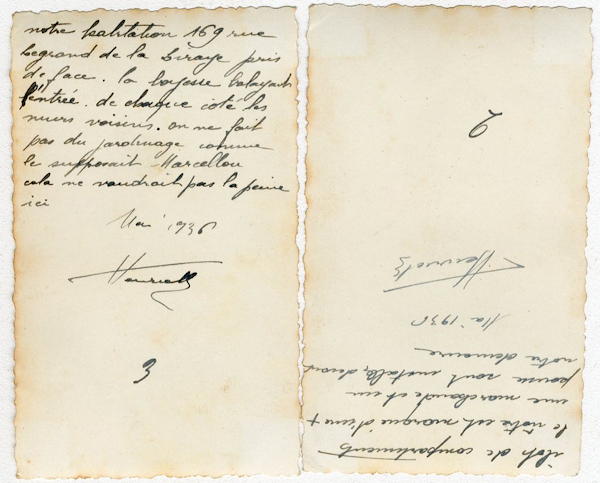 notre habitation 169 rue
Legrand de la Liraye pris
de face. la bayesse balayant
l'entrée. de chaque côté les
murs voisins. on ne fait
pas du jardinage comme
le supposait Marcellou
cela ne vaudrait pas la peine
ici
Mai 1936
3
ilot de compartiments
le nôtre est marqué d'une +
une marchande et un
pousse sont installés devant
notre demeure
Mai 1936
2